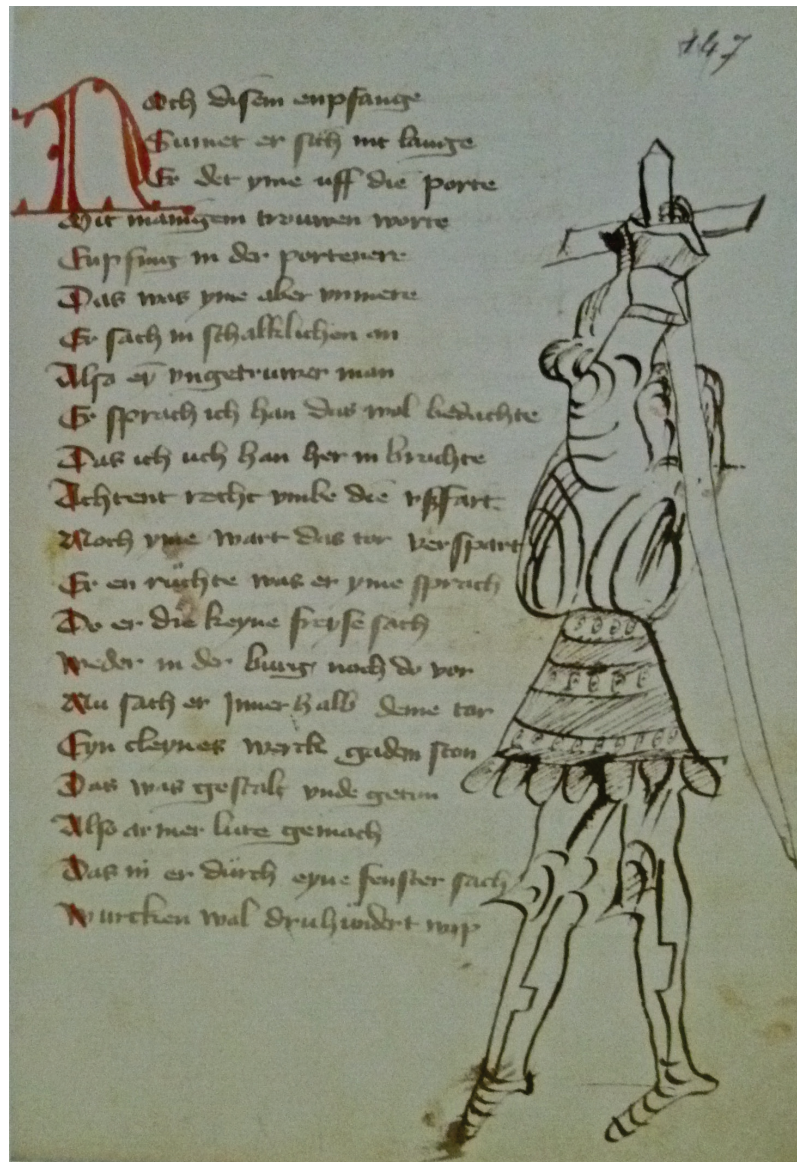 147
Noch disem enpfange
Sumet er sich nit lange
Er det yme uff die porte
Mit manigem truwen worte
Enpfing in der portenere
Das was yme aber vnmere
Er sach in schalklichen an
Also ey vngetruwer man
Er sprach ich han das wol bedachte
Das ich uch han her in brachte
Achtent recht vmbe die vsffart
Noch yme wart das tor verspart
Er en rüchte was er yme sprach
Do er die keyne freyse sach
Weder in der burg noch do vor
Nu sach er Innerhalb deme tor
Eyn cleynes werck gadem ston
Das was gestalt vnde geton
Also armer lute gemach
Das in er dürch eyne fenster sach
Wurcken wal druhündert wip